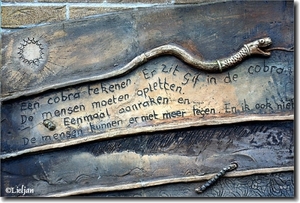 Een cobra tekenen. Er zit gif in de cobra.
De mensen moeten opletten.
Eenmaal aanraken en
De mensen kunnen er niet meer tegen. En ik ook niet
©Lieljan